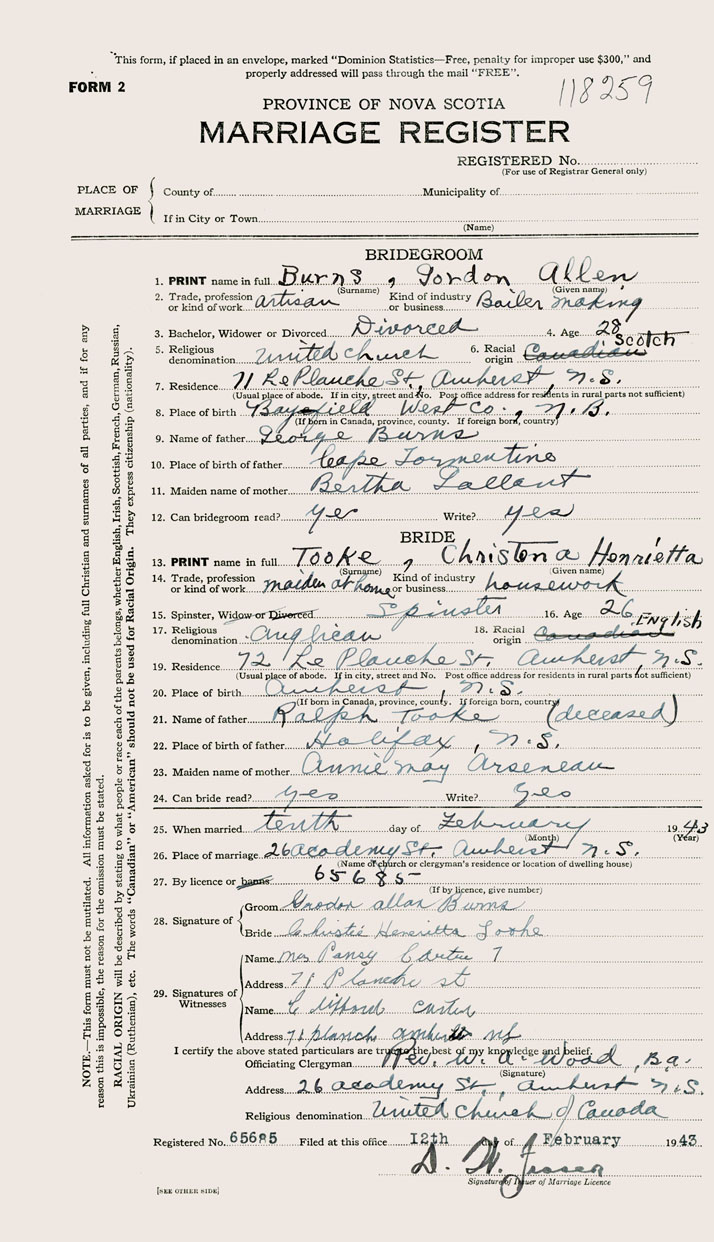 This form, if placed in an envelope, marked "Dominion Statistics—Free, penalty for improper use $300," and
properly addressed will pass through the mail "FREE".
FORM 2
118259
PROVINCE OF NOVA SCOTIA
MARRIAGE REGISTER
REGISTERED No.
(For use of Registrar General only)
PLACE OF MARRIAGE
County of Municipality of
If in City or Town
(Name)
BRIDEGROOM
1. PRINT name in full Burns, Gordon Allen
(Surname) (Given name)
2. Trade, profession or kind of work artisan Kind of industry or business Boiler making
3. Bachelor, Widower or Divorced Divorced 4. Age 28
5. Religious denomination United church 6. Racial origin Canadian Scotch
7. Residence 71 LePlanche St., Amherst, N.S.
(Usual place of abode. If in city, street and No. Post office address for residents in rural parts not sufficient)
8. Place of birth Bayfield West Co., N.B.
(If born in Canada, province, county. If foreign born, country)
9. Name of father George Burns
10. Place of birth of father Cape Tormentine
11. Maiden name of mother Bertha Lallant
12. Can bridegroom read? yes Write? yes
BRIDE
13. PRINT name in full Tooke, Christena Henrietta
(Surname) (Given name)
14. Trade, profession or kind of work maiden at home Kind of industry or business housework
15. Spinster, Widow or Divorced Spinster 16. Age 26
17. Religious denomination Anglican 18. Racial origin Canadian English
19. Residence 72 Le Planche St. Amherst, N.S.
(Usual place of abode. If in city, street and No. Post office address for residents in rural parts not sufficient)
20. Place of birth Amherst, N.S.
(If born in Canada, province, county. If foreign born, country)
21. Name of father Ralph Tooke (deceased)
22. Place of birth of father Halifax, N.S.
23. Maiden name of mother Annie May Arseneau
24. Can bride read? yes Write? yes
25. When married tenth day of February 1943
(Month) (Year)
26. Place of marriage 26 Academy St. Amherst N.S.
(Name of church or clergyman's residence or location of dwelling house)
27. By licence or banns 65685
(If by licence, give number)
28. Signature of
Groom Gordon allan Burns
Bride Christie Henrietta Tooke
29. Signatures of Witnesses
Name Mrs Pansy
Address 71 Planche st
Name Clifford Carter
Address 71 planch amherst ns
I certify the above stated particulars are true to the best of my knowledge and belief.
Officiating Clergyman Rev. W. A. Wood, B.a.
(Signature)
Address 26 academy St., Amherst N.S.
Religious denomination United church of Canada
Registered No. 65685 Filed at this office 12th day of February 1943
D. W.
Signature of Issuer of Marriage Licence
[SEE OTHER SIDE]
NOTE.—This form must not be mutilated. All information asked for is to be given, including full Christian and surnames of all parties, and if for any
reason this is impossible, the reason for the omission must be stated.
RACIAL ORIGIN will be described by stating to what people or race each of the parents belongs, whether English, Irish, Scottish, French, German, Russian,
Ukrainian (Ruthenian), etc. The words "Canadian" or "American" should not be used for Racial Origin. They express citizenship (nationality).